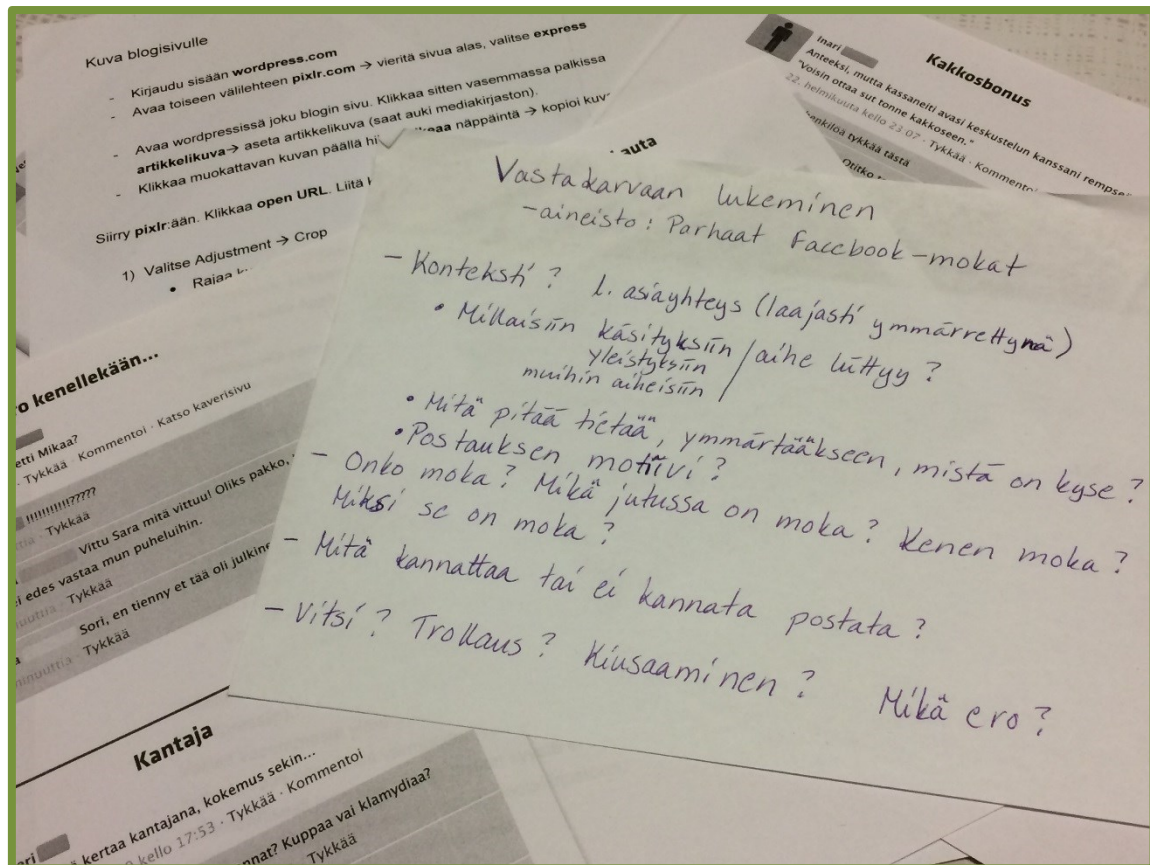 Kuva blogisivulle
- Kirjaudu sisään wordpress.com
- Avaa toiseen välilehteen pixlr.com → vieritä sivua alas, valitse express
- Avaa wordpressissä joku blogin sivu. Klikkaa sitten vasemmassa palkissa
artikkelikuva→ aseta artikkelikuva (saat auki mediakirjaston).
- Klikkaa muokattavan kuvan päällä näppäintä → kopioi
Siirry pixlr:ään. Klikkaa open URL. Liitä
1) Valitse Adjustment → Crop
• Rajaa
Kakkosbonus
Inari
Anteeksi, mutta kassaneiti avasi keskustelun kanssani
"Voisin ottaa sut tonne kakkoseen."
22. helmikuuta kello 23:07 · Tykkää · Kommentoi
tykkää tästä
Vastakarvaan lukeminen
-aineisto: Parhaat Facebook-mokat
- Konteksti? l. asiayhteys (laajasti ymmärrettynä)
• Millaisiin käsityksiin / aihe liittyy?
yleistyksiin
muihin aiheisiin
• Mitä pitää tietää, ymmärtääkseen, mistä on kyse?
• Postauksen motiivi?
- Onko moka? Mikä jutussa on moka? Kenen moka?
Miksi se on moka?
- Mitä kannattaa tai ei kannata postata?
- Vitsi? Trollaus? Kiusaaminen? Mikä ero?
kenellekään...
Mikaa?
Tykkää · Kommentoi · Katso kaverisivu
!!!!!!!!!!?????
Tykkää
Vittu Sara mitä vittuu! Oliks pakko,
ei edes vastaa mun puheluihin.
Tykkää
Sori, en tienny et tää oli
Tykkää
Kantaja
kertaa kantajana, kokemus sekin...
kello 17:53 · Tykkää · Kommentoi
Kuppaa vai klamydiaa?
Tykkää